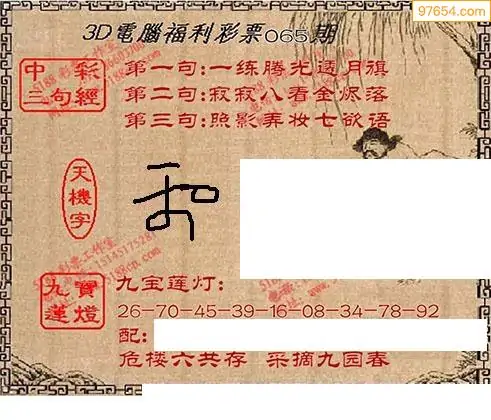 97654.com
3D電腦福利彩票065期
中彩三句經
第一句:一练腾光透月旗
第二句:寂寂八看金烬落
第三句:照影弄妆七欲语
天機字
九寶蓮燈
九宝莲灯:
26-70-45-39-16-08-34-78-92
配:
危楼六共存 采摘九园春